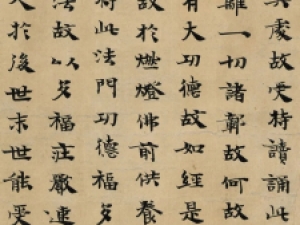 其處故受持讀誦此
離一切諸鄣故何故
有大功德故如經是
故於燃燈佛前供養
將此法門功德福多
法故以多福莊嚴速
人於後世末世能受